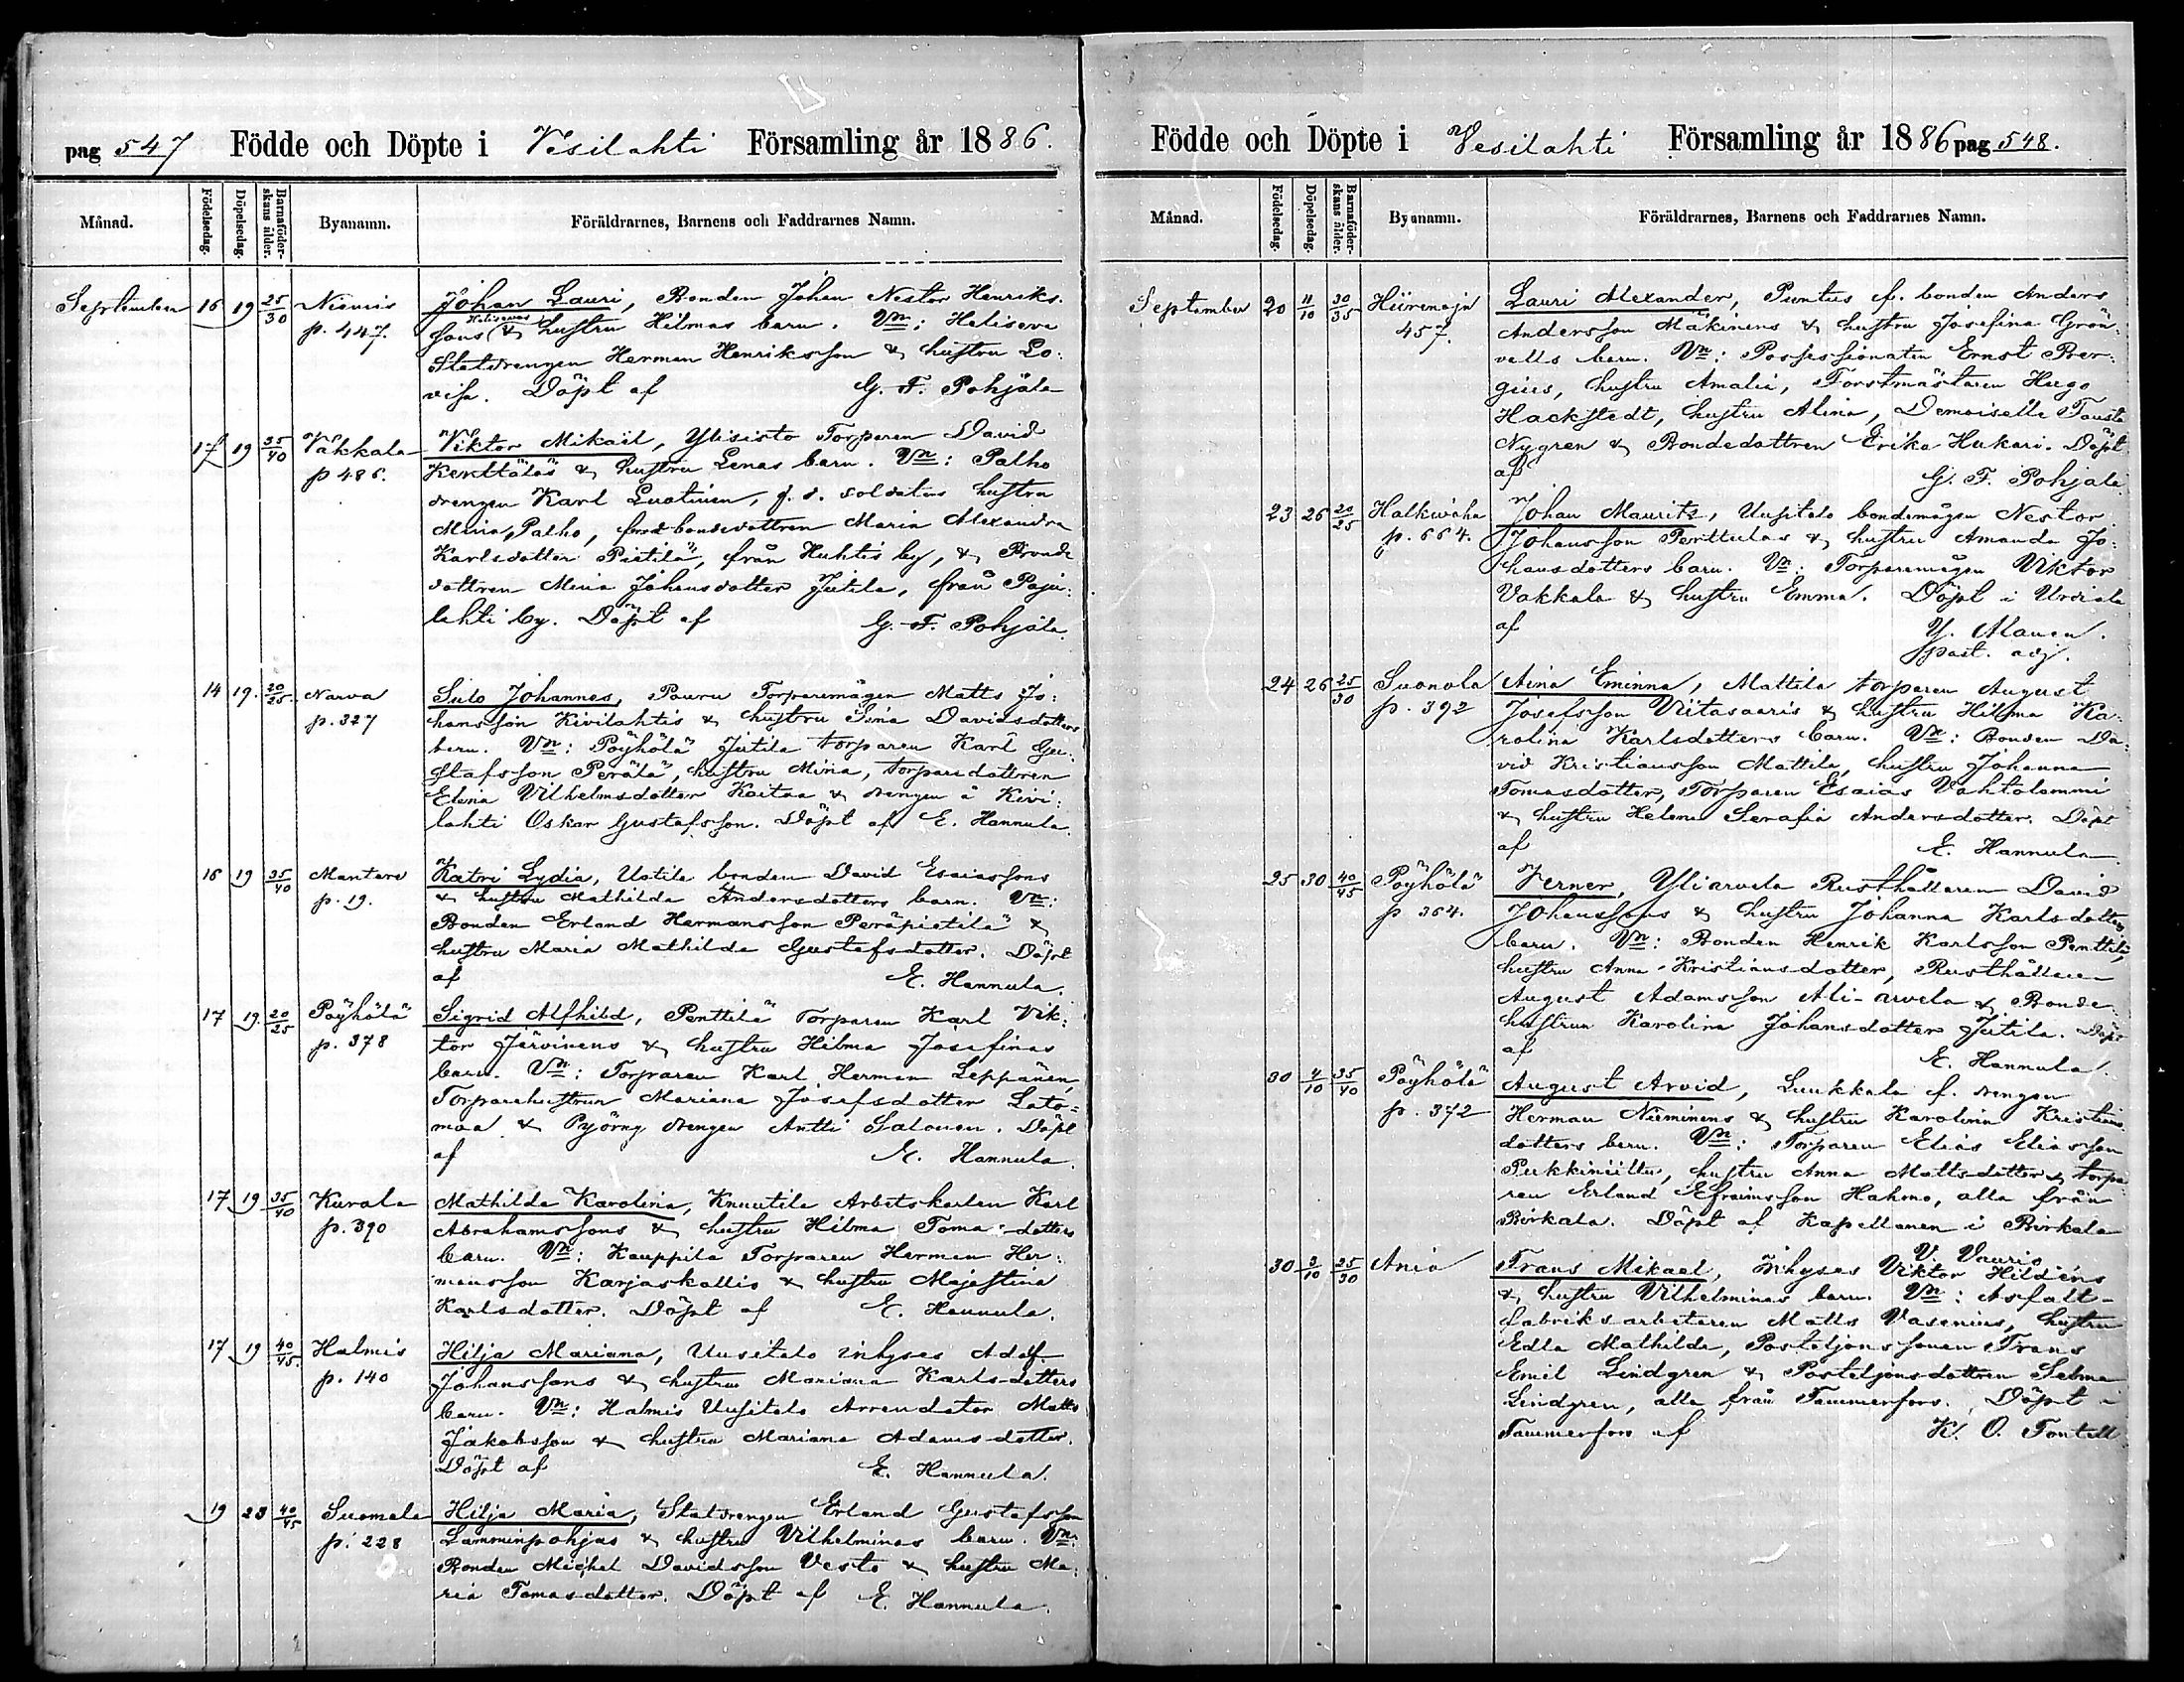 pag 547 Födde och Döpte i Vesilahti Församling år 1886.
Månad. Födelsedag. Döpelsedag. Barnaföderskans ålder. Byanamn. Föräldrarnes, Barnens och Faddrarnes Namn.
September 16 19 25/30 Niemis Johan Lauri, Bonden Johan Nestor Henriks-
p. 447. sons Heliseva & hustru Hilmas barn. Vn: Heliseva
Statdrengen Herman Henriksson & hustru Lo-
visa. Döpt af G. F. Pohjala
17 19 35/40 Vakkala Viktor Mikael, Ylisisto Torparen David
p 486. Kerttäläs & hustru Lenas barn. Vn: Palho
drengen Karl Luotinen, f. d. soldatens hustru
Miina Palho, bondedottren Maria Alexandra
Karlsdotter Pietilä, från Huhtis by, & Bonde
dottren Miina Johansdotter Jutila, från Paju-
lahti by. Döpt af G. F. Pohjala.
14 19. 20/25. Narva Sulo Johannes, Pouru Torparemågen Matts Jo-
p. 327 hansson Kivilahtis & hustru Sina Davidsdotters
barn. Vn: Pöyhölä Jutila torparen Karl Gu-
stafsson Perälä, hustru Miina, torparedottren
Elina Vilhelmsdotter Koitaa & drengen å Kivi-
lahti Oskar Gustafsson. Döpt af E. Hannula.
16 19 35/40 Mantere Katri Lydia, Uotila bonden David Esaiassons
p. 19. & hustru Mathilda Andersdotters barn. Vn:
Bonden Erland Hermansson Peräpietilä &
hustru Maria Mathilda Gustafsdotter. Döpt
af E. Hannula.
17 19 20/25 Pöyhölä Sigrid Alfhild, Penttilä Torparen Karl Vik-
p. 378 tor Järvinens & hustru Hilma Josefinas
barn. Vn: Torparen Karl Herman Leppänen,
Torparehustrun Mariana Josefsdotter Lato-
maa & Pyörny drengen Antti Salonen. Döpt
af E. Hannula.
17 19 35/40 Kurala Mathilda Karolina, Knuutila Arbetskarlen Karl
p. 390 Abrahamssons & hustru Hilma Toma-dotters
barn. Vn: Kauppila Torparen Herman Her-
mansson Karjaskallio & hustru Majastina
Karlsdotter. Döpt af E. Hannula.
17 19 40/45. Halmis Hilja Mariana, Uusitalo inhyses Adolf
p. 140 Johanssons & hustru Mariana Karlsdotters
barn. Vn: Halmis Uusitalo Arrendator Matts
Jakobsson & hustru Mariana Adamsdotter.
Döpt af E. Hannula.
19 23 40/45 Suomela Hilja Maria, Statdrengen Erland Gustafsson
p. 228 Lamminpohjas & hustru Vilhelminas barn. Vn:
Bonden Michel Davidsson Vesto & hustru Ma-
ria Tomasdotter. Döpt af E. Hannula.
Födde och Döpte i Vesilahti Församling år 1886 pag 548.
Månad. Födelsedag. Döpelsedag. Barnaföderskans ålder. Byanamn. Föräldrarnes, Barnens och Faddrarnes Namn.
September 20 11/10 30/35 Hiirenoja Lauri Alexander, Puntus f. bonden Anders
457. Andersson Mäkinens & hustru Josefina Grön-
valls barn. Vn: Possessionaten Ernst Ber-
gius, hustru Amalia, Forstmästaren Hugo
Hackstedt, hustru Alina, Demoiselle Fausta
Nygren & Bondedottren Erika Hukari. Döpt
af G. F. Pohjala
23 26 20/25 Halkivaha Johan Maurits, Uusitalo bondemågen Nestor
p. 664. Johansson Perttulas & hustru Amanda Jo-
hansdotters barn. Vn: Torparemågen Viktor
Vakkala & hustru Emma. Döpt i Urdiala
af Y. Alanen.
past. adj.
24 26 25/30 Suonola Aina Eminna, Mattila torparen August
p. 392 Josefsson Viitasaaris & hustru Hilma Ka-
rolina Karlsdotters barn. Vn: Bonden Da-
vid Kristiansson Mattila, hustru Johanna
Tomasdotter, Torparen Esaias Vahtolammi
& hustru Helena Serafia Andersdotter. Döpt
af E. Hannula.
25 30 40/45 Pöyhölä Verner, Yliarvela Rusthållaren David
p 364. Johanssons & hustru Johanna Karlsdotters
barn. Vn: Bonden Henrik Karlsson Penttilä,
hustru Anna Kristiansdotter, Rusthållaren
August Adamsson Ali-arvela & Bonde
hustrun Karolina Johansdotter Jutila. Döpt
af E. Hannula.
30 4/10 35/40 Pöyhölä August Arvid, Luukkala f. drengen
p. 372 Herman Nieminens & hustru Karolina Kristians
dotters barn. Vn: Torparen Elias Eliasson
Pukkiniitty, hustru Anna Mattsdotter & torpa-
ren Erland Efraimsson Hakmo, alla från
Birkala. Döpt af Kapellanen i Birkala
V. Vaurio
30 3/10 25/30 Ania Frans Mikael, Inhyses Viktor Hildéns
& hustru Vilhelminas barn. Vn: Asfalt-
fabriksarbetaren Matts Vasenius, hustru
Edla Mathilda, Posteljonssonen Frans
Emil Lindgren & Posteljonsdottren Selma
Lindgren, alla från Tammerfors. Döpt i
Tammerfors af K. O. Fontell